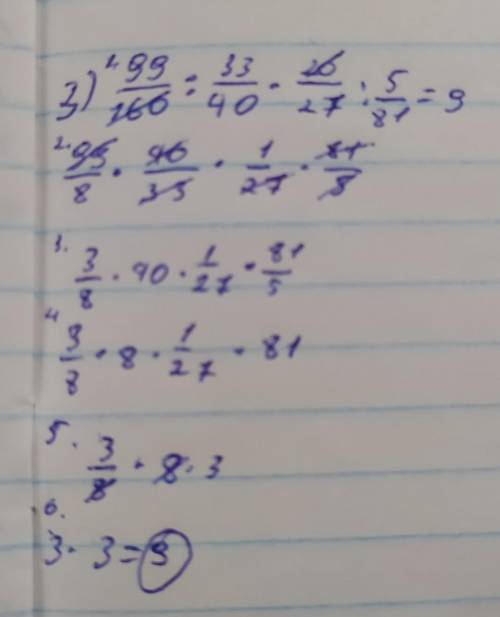 3) 1. 99/160 : 33/40 · 16/27 : 5/81 = 9
2. 99/8 · 40/33 · 1/27 · 81/5
3. 3/8 · 40 · 1/27 · 81/5
4. 3/8 · 8 · 1/27 · 81
5. 3/8 · 8 · 3
6.
3 · 3 = 9